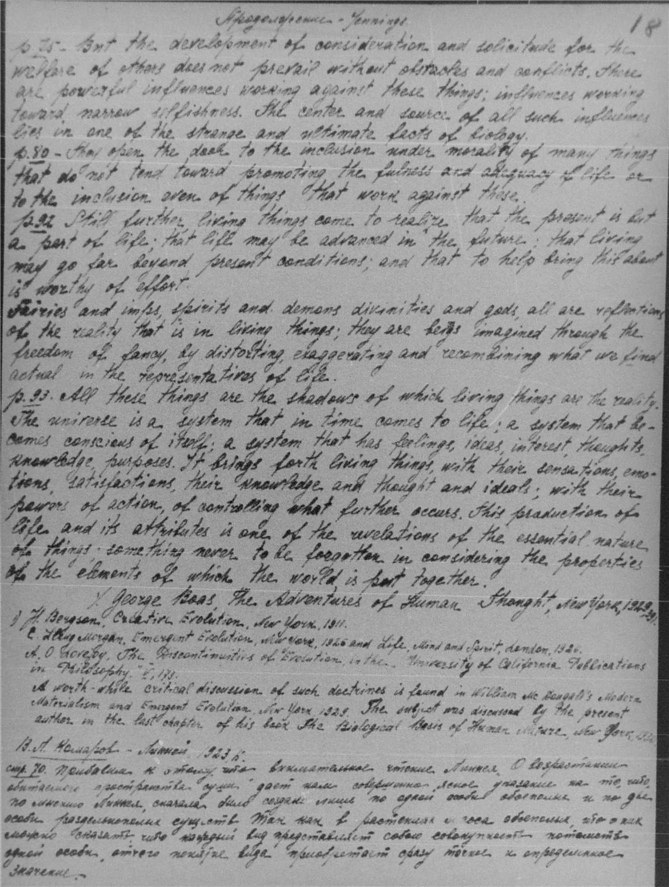 Продолжение - Jennings. 18
p. 75 - But the development of consideration and solicitude for the
welfare of others does not prevail without obstacles and conflicts. There
are powerful influences working against these things; influences working
toward narrow selfishness. The center and source of all such influences
lies in one of the strange and ultimate facts of biology.
p. 80 - they open the door to the inclusion under morality of many things
that do not tend toward promoting the fulness and adequacy of life or
to the inclusion even of things that work against these.
p. 92 Still further living things come to realize that the present is but
a part of life; that life may be advanced in the future; that living
may go far beyond present conditions; and that to help bring this about
is worthy of effort.
Fairies and imps, spirits and demons divinities and gods, all are reflections
of the reality that is in living things; they are beings imagined through the
freedom of fancy, by distorting, exaggerating and recombining what we find
actual in the representatives of life.
p. 93. All these things are the shadows of which living things are the reality.
The universe is a system that in time comes to life; a system that be-
comes conscious of itself; a system that has feelings, ideas, interest, thoughts,
knowledge, purposes. It brings forth living things, with their sensations, emo-
tions, satisfactions, their knowledge and thought and ideals; with their
powers of action, of controlling what further occurs. This production of
life and its attributes is one of the revelations of the essential nature
of things: something never to be forgotten in considering the properties
of the elements of which the world is put together.
George Boas, The Adventures of Human Thought, New York, 1929
H. Bergson, Creative Evolution, New York, 1911.
C. Lloyd Morgan, Emergent Evolution, New York, 1926 and Life, Mind and Spirit, London, 1926.
A. O. Lovejoy. The Discontinuities of Evolution, in the University of California Publications
in Philosophy.
A worth-while critical discussion of such doctrines is found in William Mc Dougall's Modern
Materialism and Emergent Evolution, New York 1929. The subject was discussed by the present
author in the last chapter of his book The Biological Basis of Human Nature, New York,
В. Л. Комаров - Линней, 1923 г.
стр. 70. Прибавим к этому, что внимательное чтение Линнея, О возрастании
обитаемого пространства суши, дает нам совершенно ясное указание на то, что,
по мнению Линнея, сначала было создано лишь по одной особи обоеполых и по две
особи раздельнополых существ. Так как растения часто обоеполы, то о них
можно сказать, что каждый вид представляет собою совокупность потомства
одной особи, отчего понятие вида приобретает сразу точное и определенное
значение.